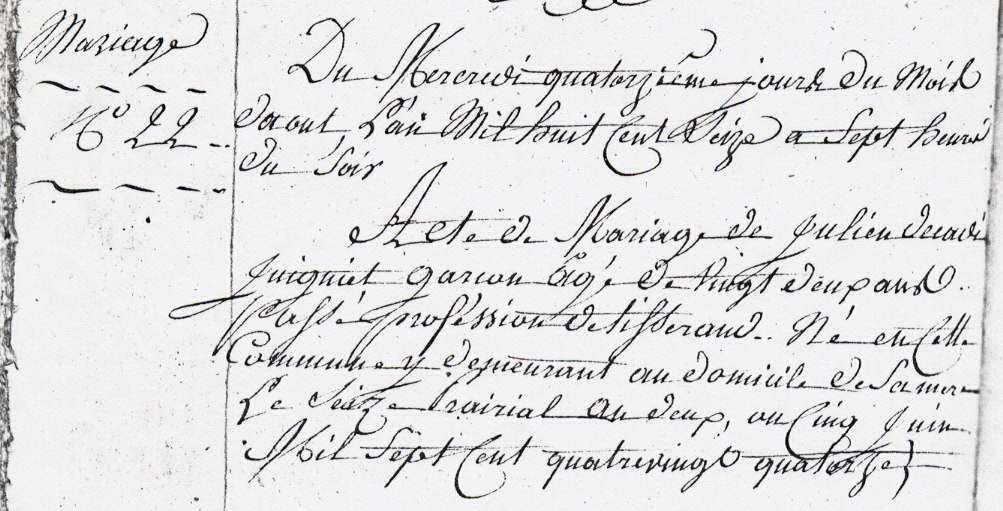 Mariage
N° 22
Du Mercredi quatorzième jours du Mois
daout L'an Mil huit Cent Seize a Sept heures
du Soir
Acte de Mariage de Julien decadi
Juigniet garcon agé de Vingt deux ans
Passé profession de tisserand. Né en Cette
Commune y demeurant au domicile de Sa mere
Le Seize Prairial an deux, ou Cinq Juin
Mil Sept Cent quatrevingt quatorze